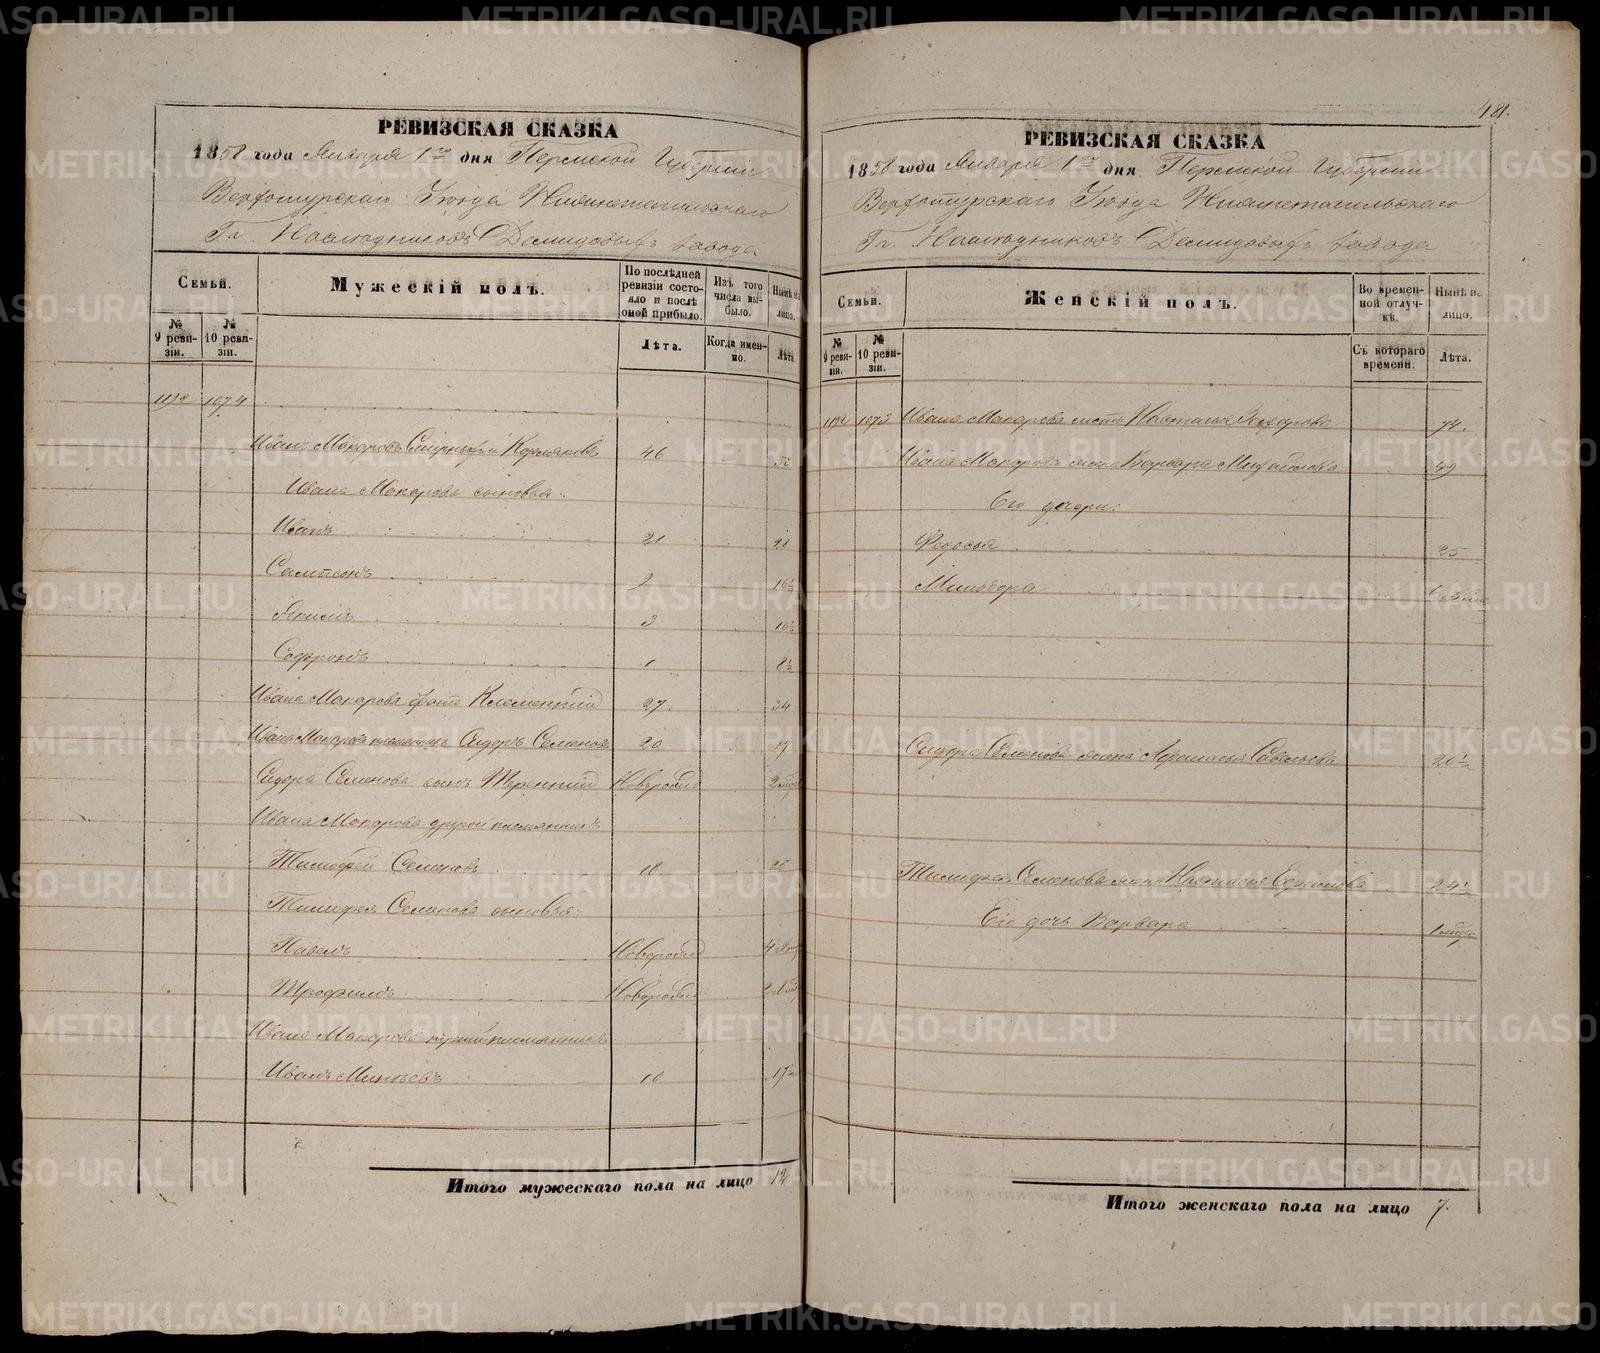 РЕВИЗСКАЯ СКАЗКА
1858 года Января 1го дня Пермской Губернiи
Верхотурскаго Уѣзда Нижнетагильскаго
Гг. Наслѣдниковъ Демидовыхъ завода
Семьи.
Мужескiй полъ.
По послѣдней ревизiи состояло и послѣ оной прибыло.
Изъ того числа выбыло.
Нынѣ на лицо.
№ 9 ревизiи.
№ 10 ревизiи.
Лѣта.
Когда именно.
Лѣта.
1192 1074
Иванъ Макаровъ Кормяковъ 46
Ивана Макарова сыновья:
Иванъ 21 28
Сампсонъ 16½
Якимъ 3 10½
Софронъ 1 8½
Ивана Макарова братъ Клементiй 27. 34
Ивана Макарова племянникъ Сидоръ Семеновъ 20
Сидора Семенова сынъ Терентiй Новорожд
Ивана Макарова другой племянникъ
Тимофей Семеновъ 18 25
Тимофея Семенова сыновья:
Павелъ Новорожд
Трофимъ Новорожд
Ивана Макарова племянникъ
Иванъ 10 17
Итого мужескаго пола на лицо 12
481.
РЕВИЗСКАЯ СКАЗКА
1858 года Января 1го дня Пермской Губернiи
Верхотурскаго Уѣзда Нижнетагильскаго
Гг. Наслѣдниковъ Демидовыхъ завода
Семьи.
Женскiй полъ.
Во временной отлучкѣ.
Нынѣ на лицо.
№ 9 ревизiи.
№ 10 ревизiи.
Съ котораго времени.
Лѣта.
1192 Ивана Макарова Настасья 74.
Ивана Макарова жена Варвара Михайлова 49
Его дочери:
Федосья 25
Сидора Семенова жена Савельева 20½
Тимофея Семенова жена Настасья 24½
Его дочь Варвара
Итого женскаго пола на лицо 7.
METRIKI.GASO-URAL.RU